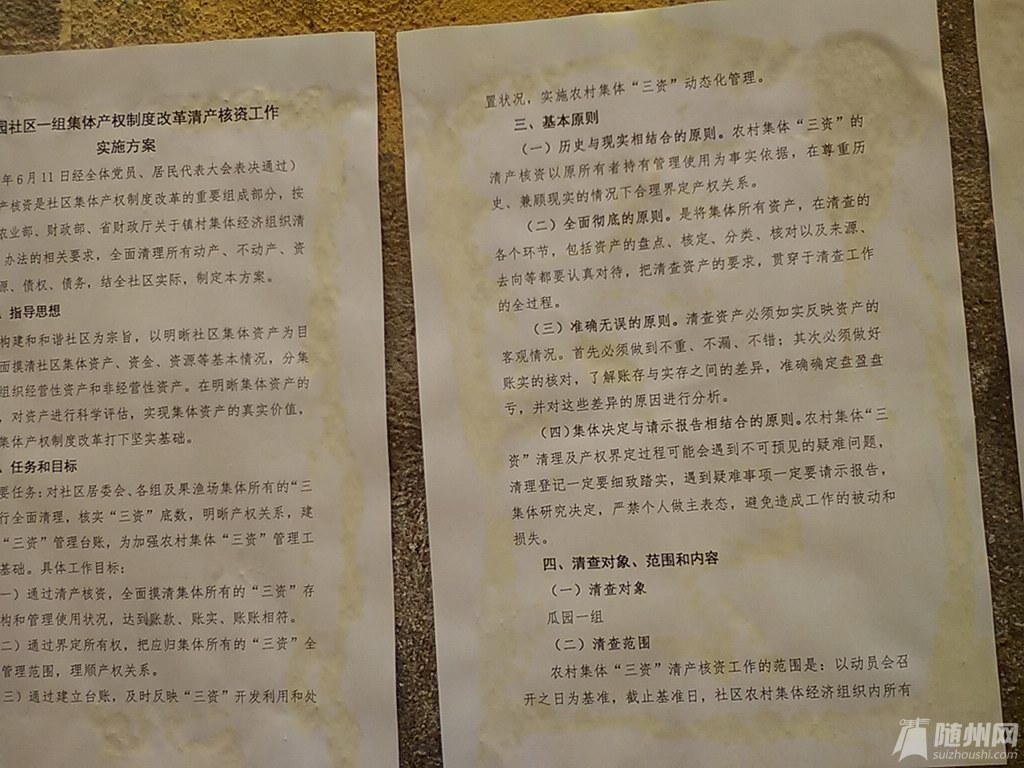 园社区一组集体产权制度改革清产核资工作
实施方案
年6月11日经全体党员、居民代表大会表决通过）
产核资是社区集体产权制度改革的重要组成部分，按
农业部、财政部、省财政厅关于镇村集体经济组织清
办法的相关要求，全面清理所有动产、不动产、资
源、债权、债务，结全社区实际，制定本方案。
、指导思想
构建和和谐社区为宗旨，以明晰社区集体资产为目
面摸清社区集体资产、资金、资源等基本情况，分集
组织经营性资产和非经营性资产。在明晰集体资产的
，对资产进行科学评估，实现集体资产的真实价值，
集体产权制度改革打下坚实基础。
、任务和目标
要任务：对社区居委会、各组及果渔场集体所有的“三
行全面清理，核实“三资”底数，明晰产权关系，建
“三资”管理台账，为加强农村集体“三资”管理工
基础。具体工作目标：
一）通过清产核资，全面摸清集体所有的“三资”存
构和管理使用状况，达到账款、账实、账账相符。
二）通过界定所有权，把应归集体所有的“三资”全
管理范围，理顺产权关系。
三）通过建立台账，及时反映“三资”开发利用和处
置状况，实施农村集体“三资”动态化管理。
三、基本原则
（一）历史与现实相结合的原则。农村集体“三资”的
清产核资以原所有者持有管理使用为事实依据，在尊重历
史、兼顾现实的情况下合理界定产权关系。
（二）全面彻底的原则。是将集体所有资产，在清查的
各个环节，包括资产的盘点、核定、分类、核对以及来源、
去向等都要认真对待，把清查资产的要求，贯穿于清查工作
的全过程。
（三）准确无误的原则。清查资产必须如实反映资产的
客观情况。首先必须做到不重、不漏、不错；其次必须做好
账实的核对，了解账存与实存之间的差异，准确确定盘盈盘
亏，并对这些差异的原因进行分析。
（四）集体决定与请示报告相结合的原则。农村集体“三
资”清理及产权界定过程可能会遇到不可预见的疑难问题，
清理登记一定要细致踏实，遇到疑难事项一定要请示报告，
集体研究决定，严禁个人做主表态，避免造成工作的被动和
损失。
四、清查对象、范围和内容
（一）清查对象
瓜园一组
（二）清查范围
农村集体“三资”清产核资工作的范围是：以动员会召
开之日为基准，截止基准日，社区农村集体经济组织内所有
随州网
suizhoushi.com